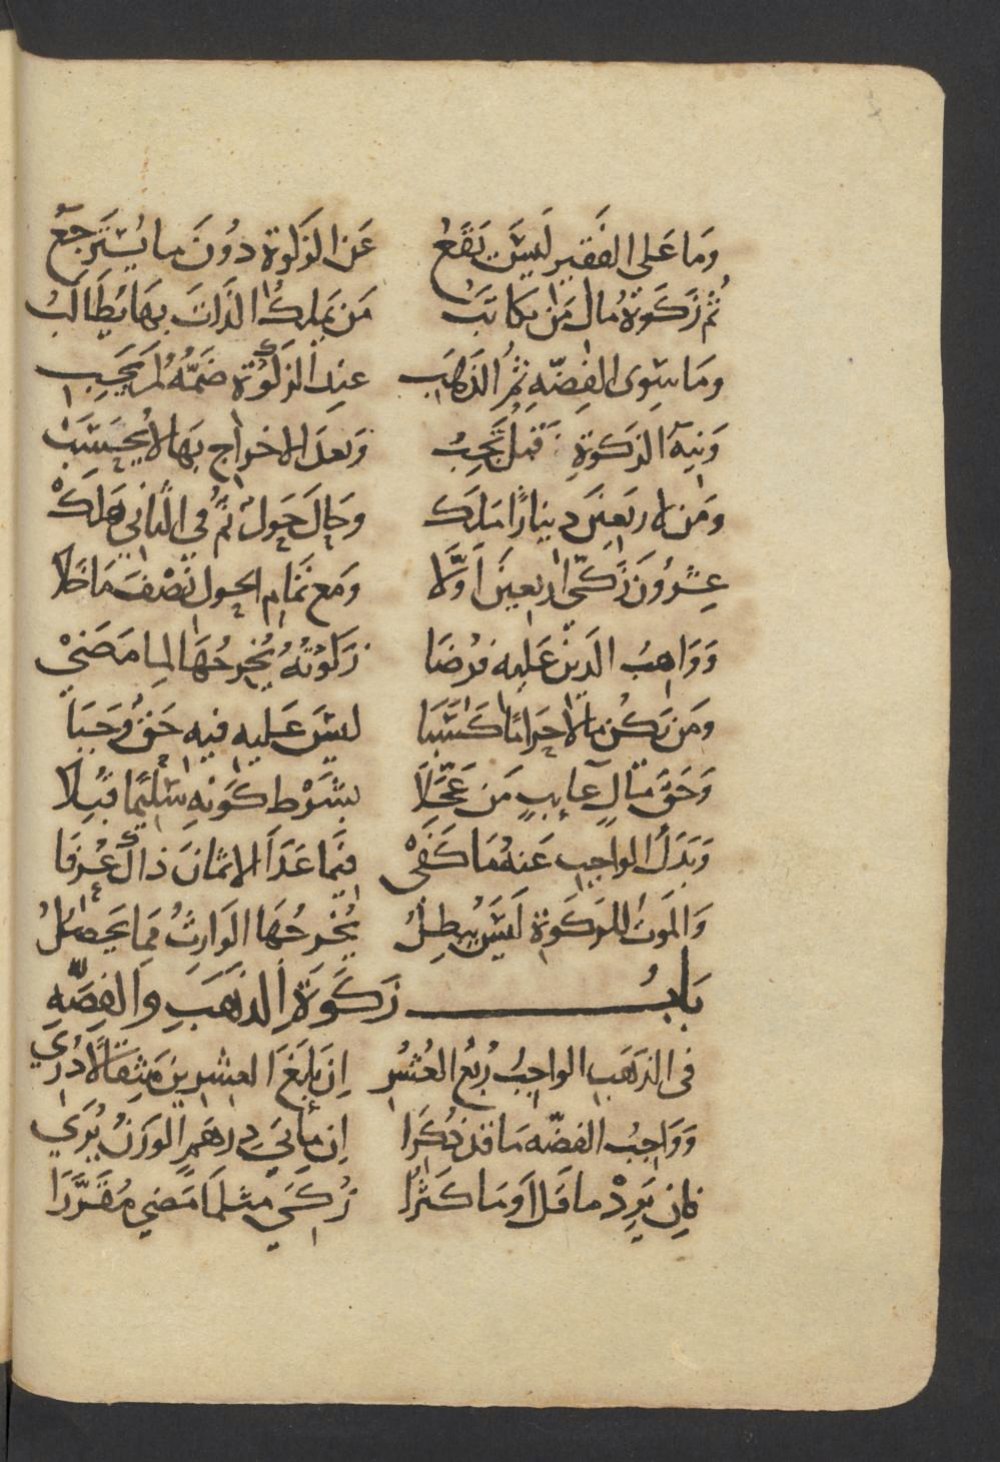 وَمَا عَلى الفَقِيرِ لَيسَ يَقَعُ عَنِ الزَكوةِ دُونَ ما يُسْتَرجَعُ
ثُم زَكوةُ مَال مَن يكَاتَبُ مَن يَملِكُ الذَاتَ بِهَا يُطَالَبُ
وَمَا سِوى الفِضّهِ ثمُ الذَهَبِ عِندِ الزَكوةِ ضَمُّهُ لمَ يَجِبِ
وَنِيةُ الزَكوةِ قَبل تَجِبُ وَبعدَ الاخراج بِهَا لا يُحسَبُ
وَمَن لاربَعِينَ دِينَارًا مَلَك وَحَالَ حَول ثمُ في الثاني هَلَكْ
عِشرُونَ زَكّى اربَعينَ اَوَّلا وَمَع تَمَامِ الحول نصْفَ مَا خَلا
وَوَاهِبُ الدَينِ عَليه فُرضَا زَكوتُهُ يُخرجُهَا لمِا مَضَىْ
وَمَن يَكُن مالا حَرَامًا كَسَبَا ليسَ عَليهِ فيهِ حَقُ وَجَبَا
وَحَقُ مَالٍ غايبٍ مَن عَجَّلَا بشَرْط كَونهِ سَليمًا قُبِلا
وَبَدَلُ الواجِبِ عَنهُ مَا كَفَىْ فِيَما عَدَا الاثمانَ ذاك عُرفَا
وَالمَوت للزَكوةِ لَيسَ يُبطِلُ يُخرجُهَا الوَارِثُ مِما يَحصلُ
بَابُ زَكَوةِ الذَهَبِ وَالفِضّهِ
فى الذهَبِ الواجِبُ رُبع العُشرِ اِن بَلَغَ العِشرينَ مِثقَالا دُرِي
وَوَاجِبُ الفِضّه مَا قد ذُكرَا اِن مايَتي دِرهَمٍ الوزنُ يُرَي
فانِ يَزِدْ ما قَل اَو مَا كَثُرا زُكِىَ مِثلمَا مَضي مُقَرَّرَا